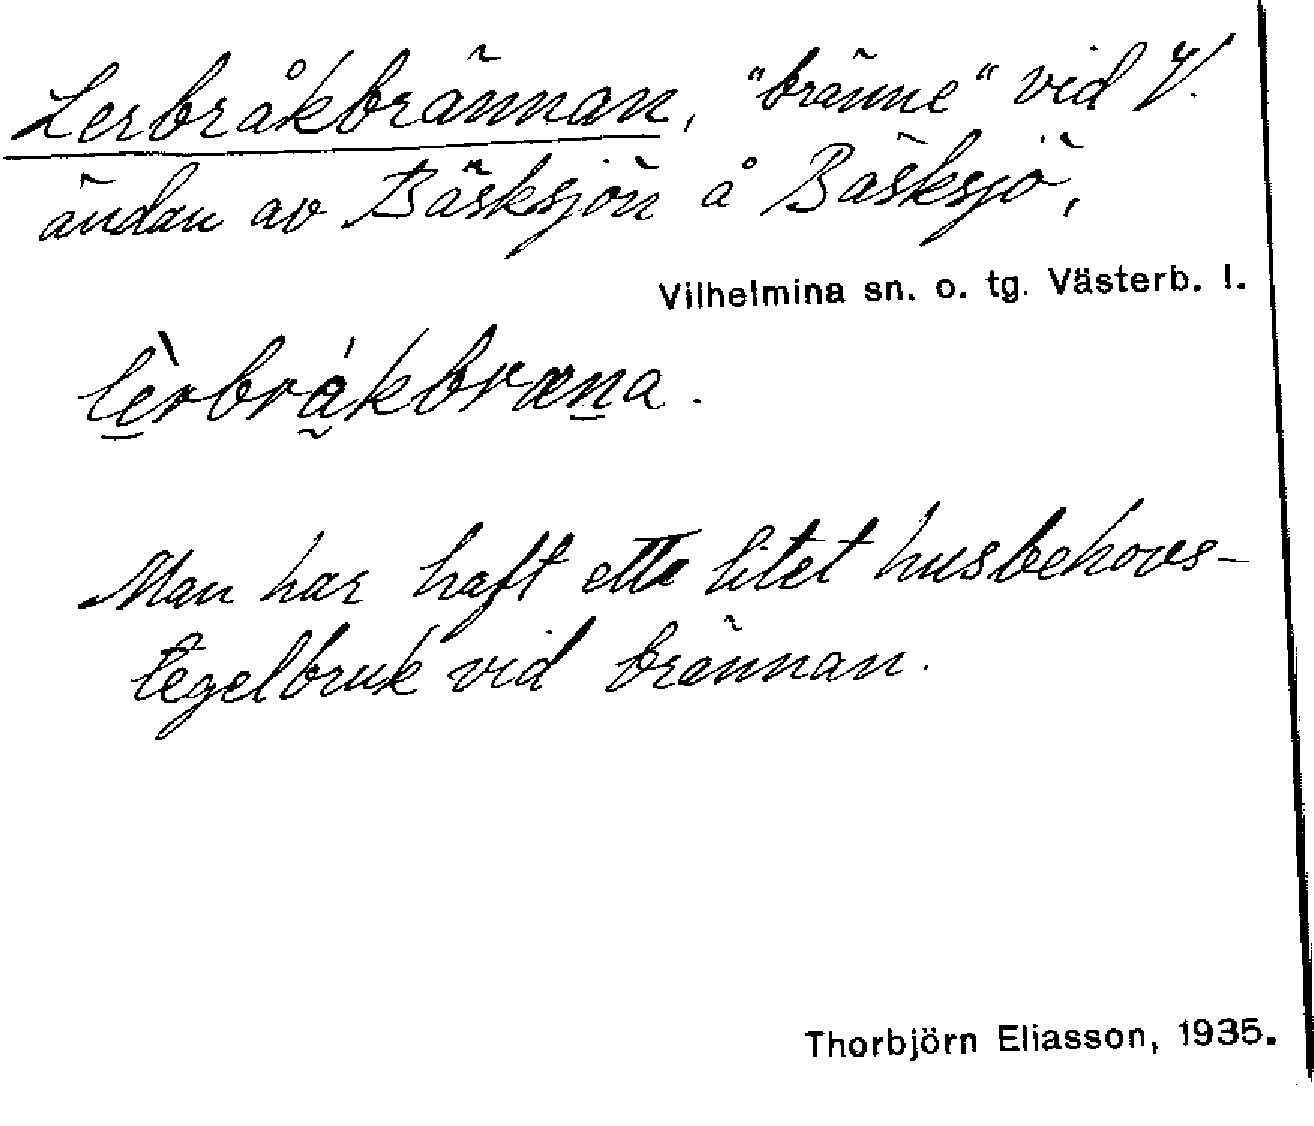 Lerbråkbrännan, "bränne" vid V.
ändan av Bäsksjön å Bäsksjö,
Vilhelmina sn. o. tg. Västerb. l.
lèrbrákbræna.
Man har haft ett litet husbehovs-
tegelbruk vid brännan.
Thorbjörn Eliasson, 1935.